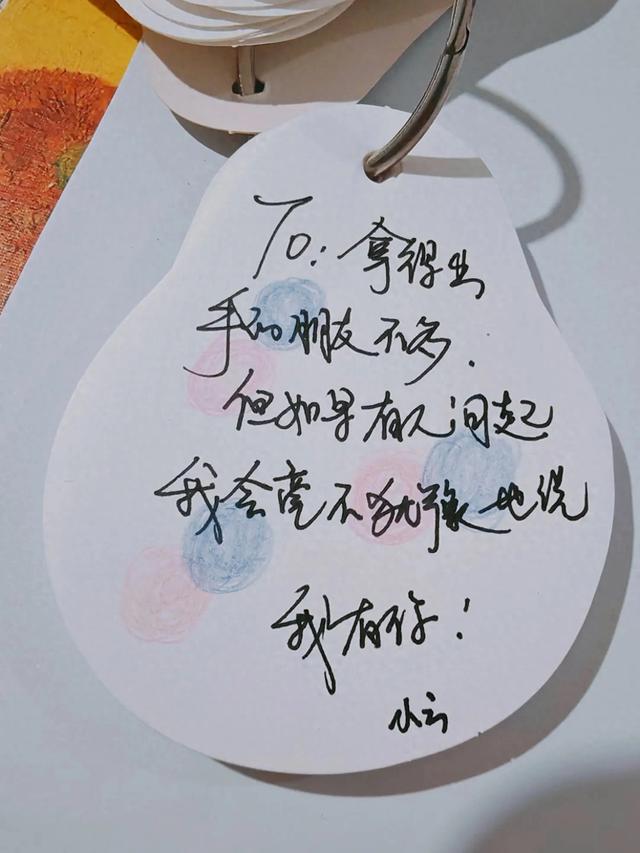 To: 拿得出
手的朋友不多.
但如果有人问起
我会毫不犹豫地说
我有你!
小云